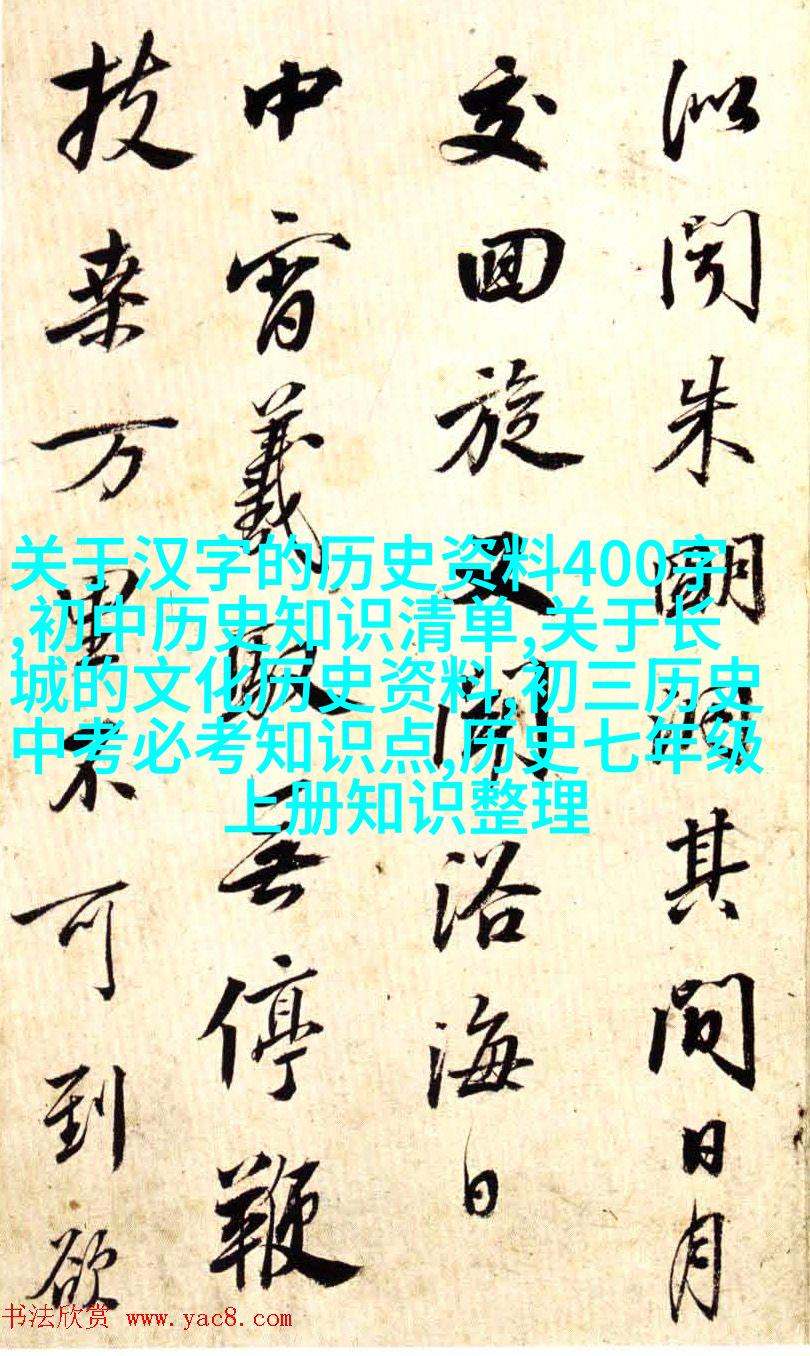 似闻朱明洞其间日月
交囬旋又闻浴海日
中宵羲驭无停鞭
扶桒万里不可到欲
关于汉字的历史资料400字
,初中历史知识清单,关于长
城的文化历史资料,初三历史
中考必考知识点,历史七年级
上册知识整理
书法欣赏 www.yac8.com